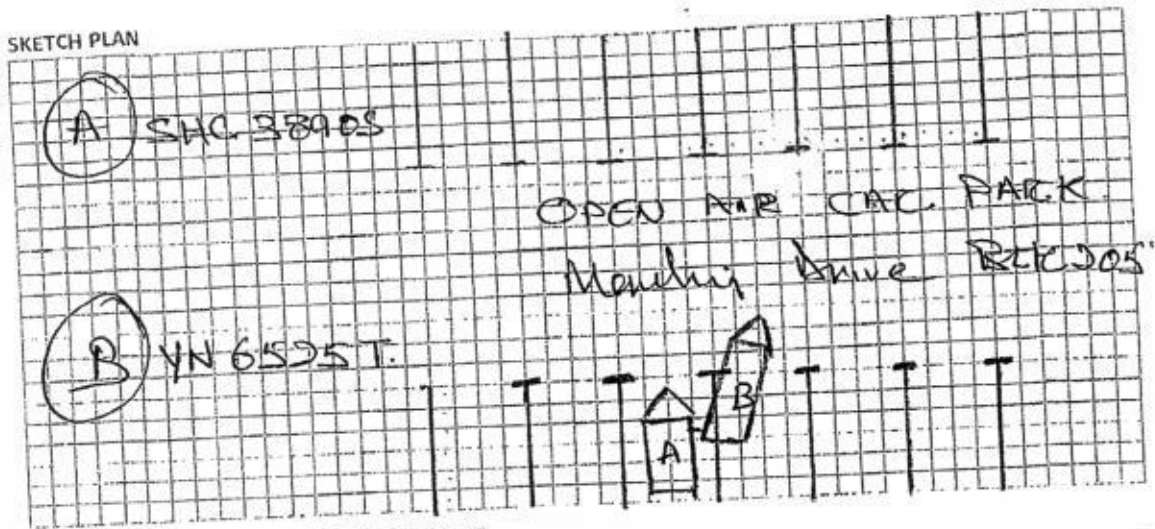 SKETCH PLAN
A SHC 3890S
OPEN AIR CAR PARK
Drive BLK 205
B YN 6525T
B
A